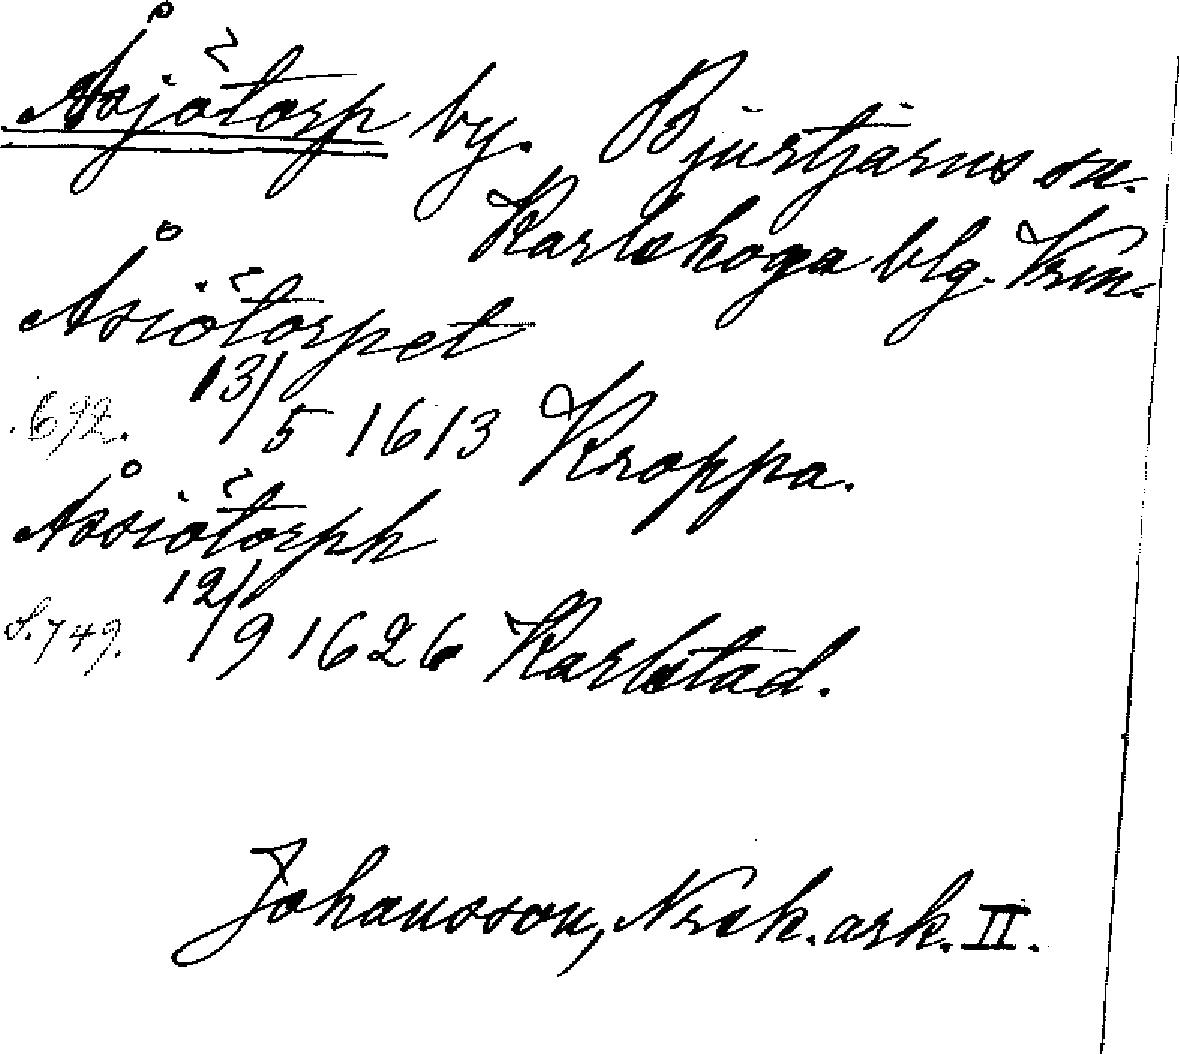 Åsjötorp by. Bjurtjärns sn.
Karlskoga blg. Krm.
Åsiötorpet
13/5 1613 Kroppa.
S. 692.
Åssiötorph
12/9 1626 Karlstad.
S. 749.
Johansson, Norsk. ark. II.